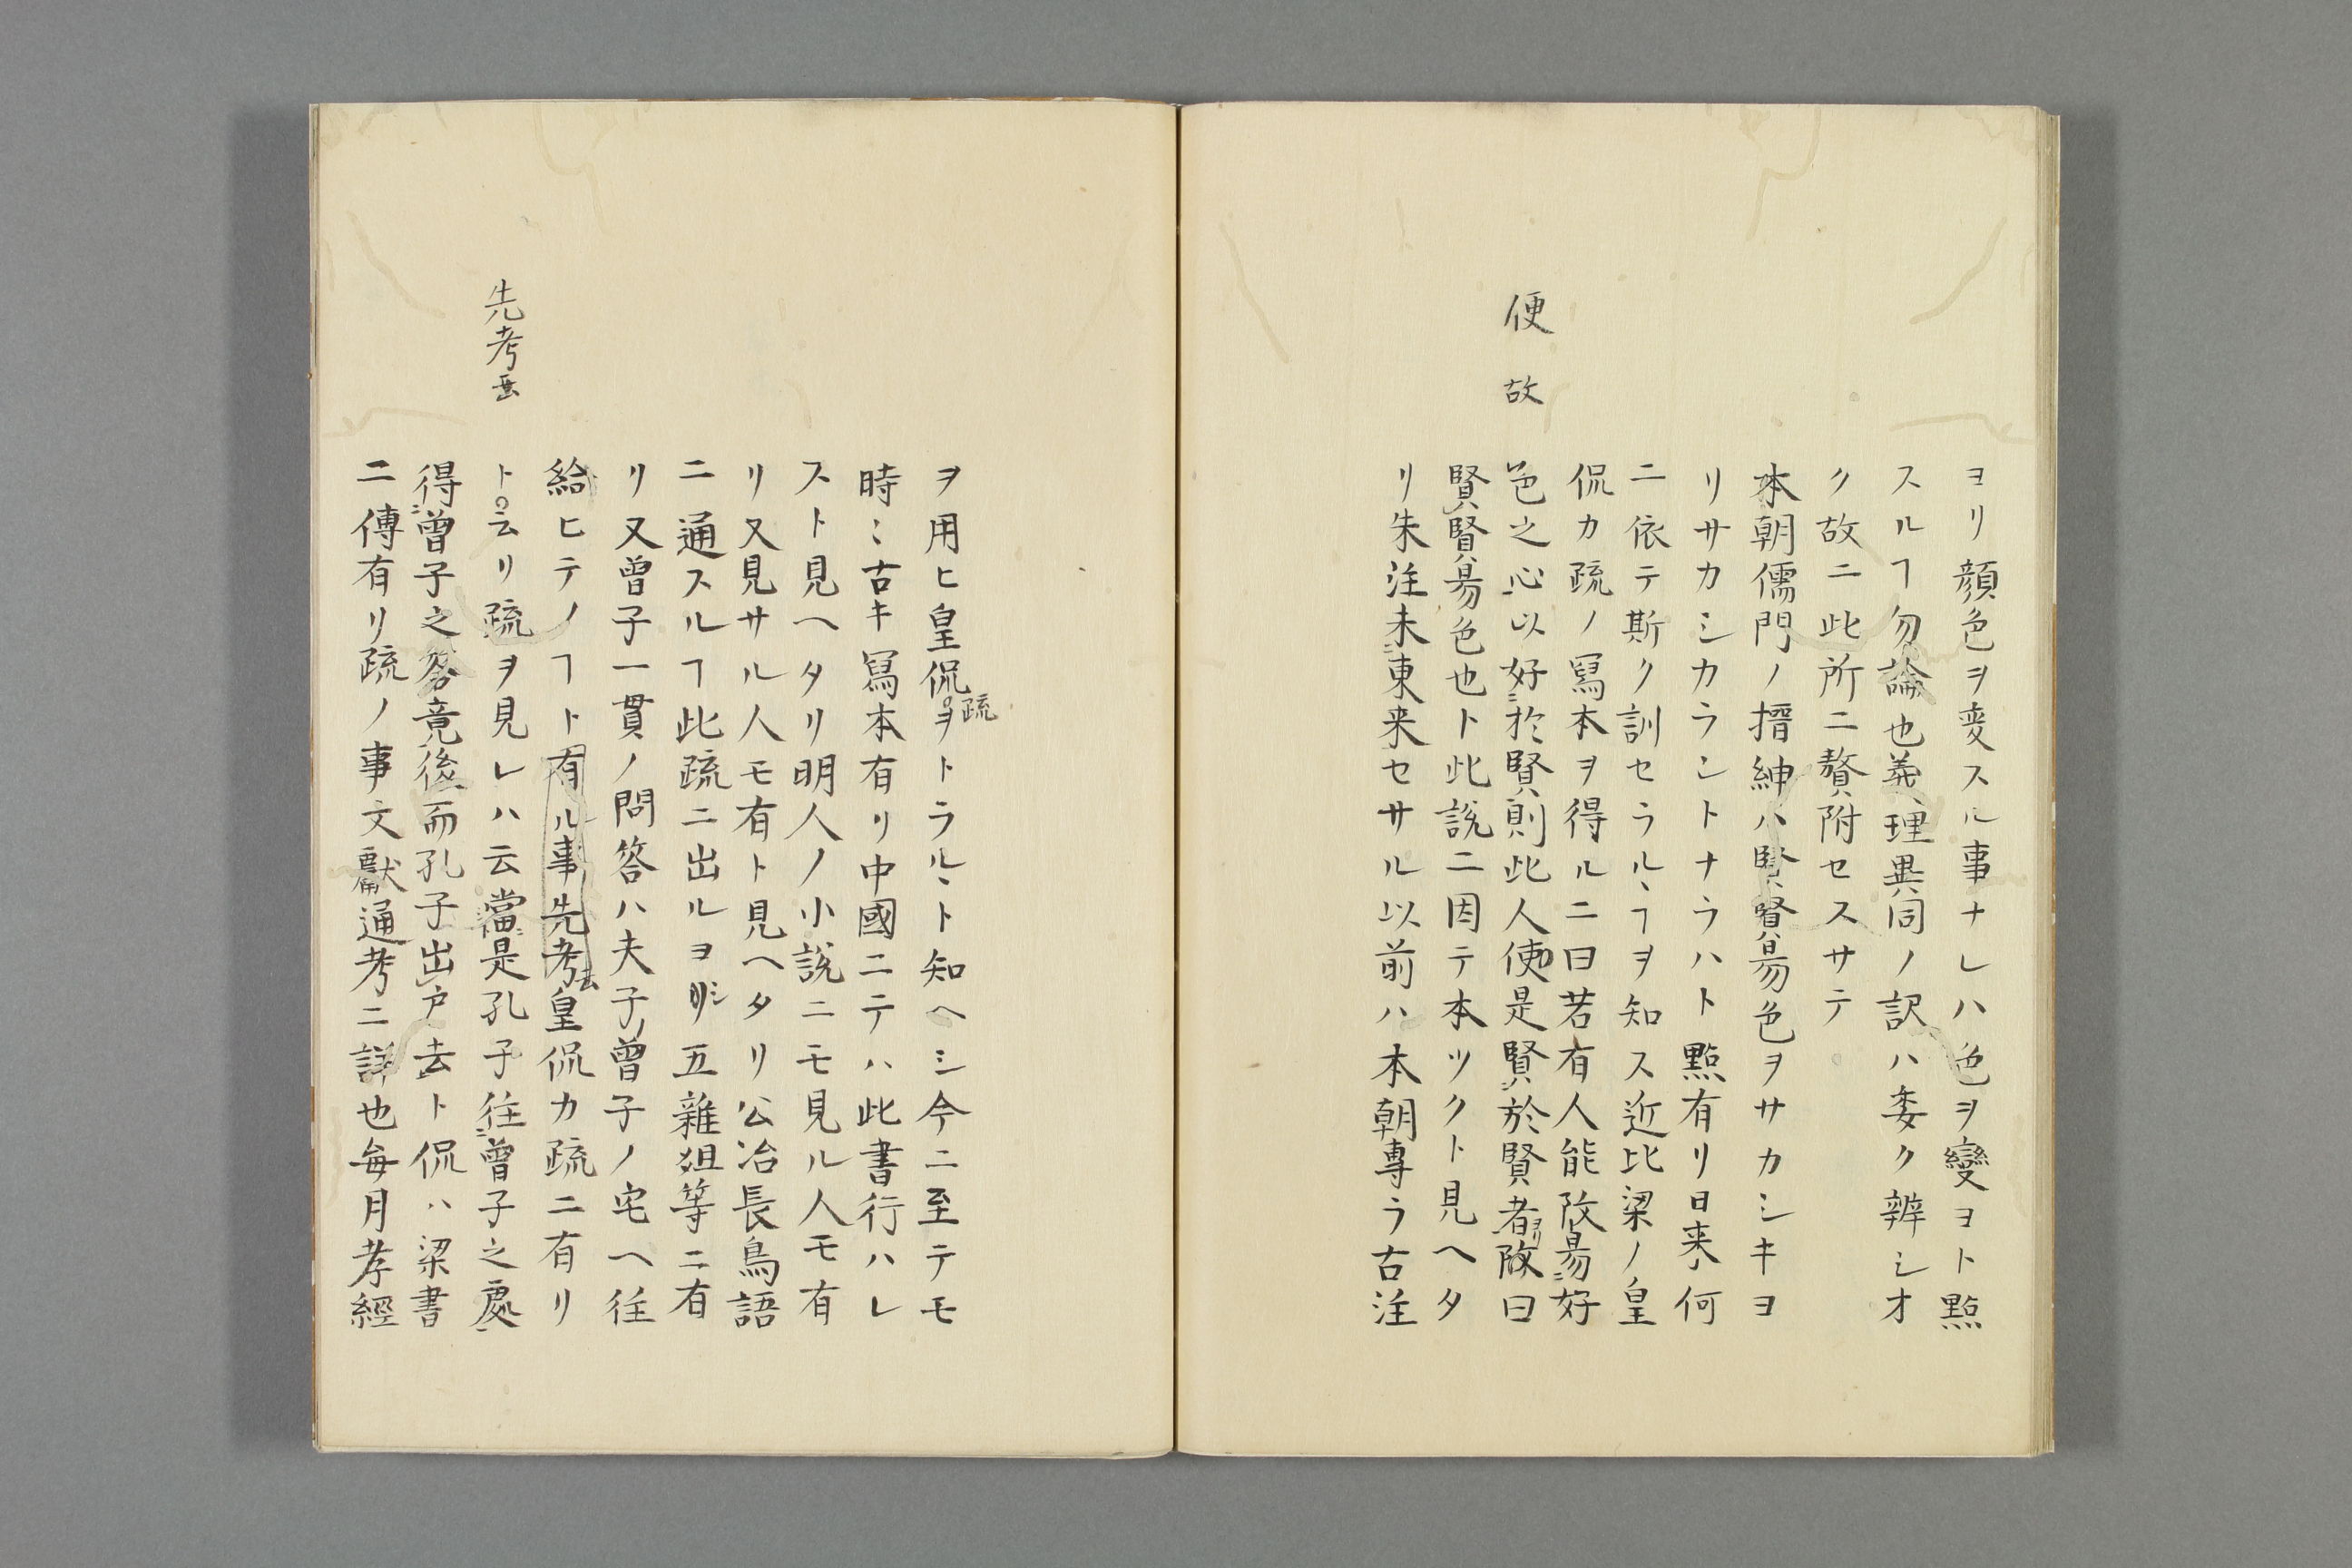 ヨリ顔色ヲ変スル事ナレハ色ヲ變ヨト點
スルヿ勿論也義理異同ノ訳ハ委ク辨シオ
ク故ニ此所ニ贅附セスサテ
本朝儒門ノ搢紳ハ賢賢昜色ヲサカシキヨ
リサカシカラントナラハト點有リ日来何
ニ依テ斯ク訓セラルヽヿヲ知ス近比梁ノ皇
侃カ疏ノ冩本ヲ得ルニ曰若有人能改昜好
便 故
色之心以好於賢則此人便是賢於賢者故曰
賢賢昜色也ト此説ニ因テ本ツクト見ヘタ
リ朱注未東来セサル以前ハ本朝專ラ古注
ヲ用ヒ皇侃疏ヲトラルヽト知ヘシ今ニ至テモ
時〻古キ冩本有リ中國ニテハ此書行ハレ
スト見ヘタリ明人ノ小説ニモ見ル人モ有
リ又見サル人モ有ト見ヘタリ公冶長鳥語
ニ通スルヿ此疏ニ出ルヨシ五雜俎等ニ有
リ又曾子一貫ノ問答ハ夫子曾子ノ宅ヘ往
給ヒテノヿト有ル事先考皇侃カ疏ニ有リ
先考
ト云リ疏ヲ見レハ云當是孔子往曾子之處
得曾子之答竟後而孔子出戸去ト侃ハ梁書
ニ傳有リ疏ノ事文獻通考ニ詳也毎月孝經